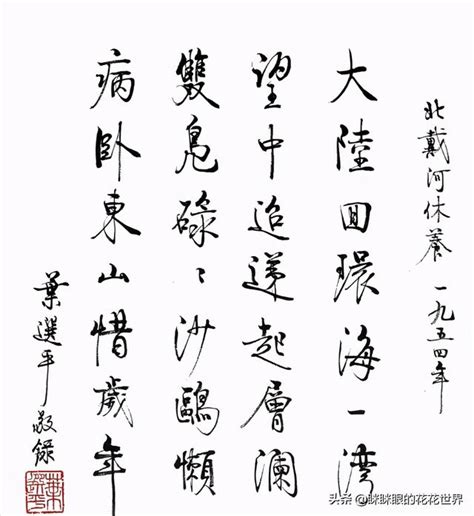 北戴河休養 一九五四年
大陸囬環海一湾
望中迢遞起層瀾
雙凫碌〻沙鷗懶
病卧東山惜歲年
葉選平敬錄
葉選平
头条 @眯眯眼的花花世界